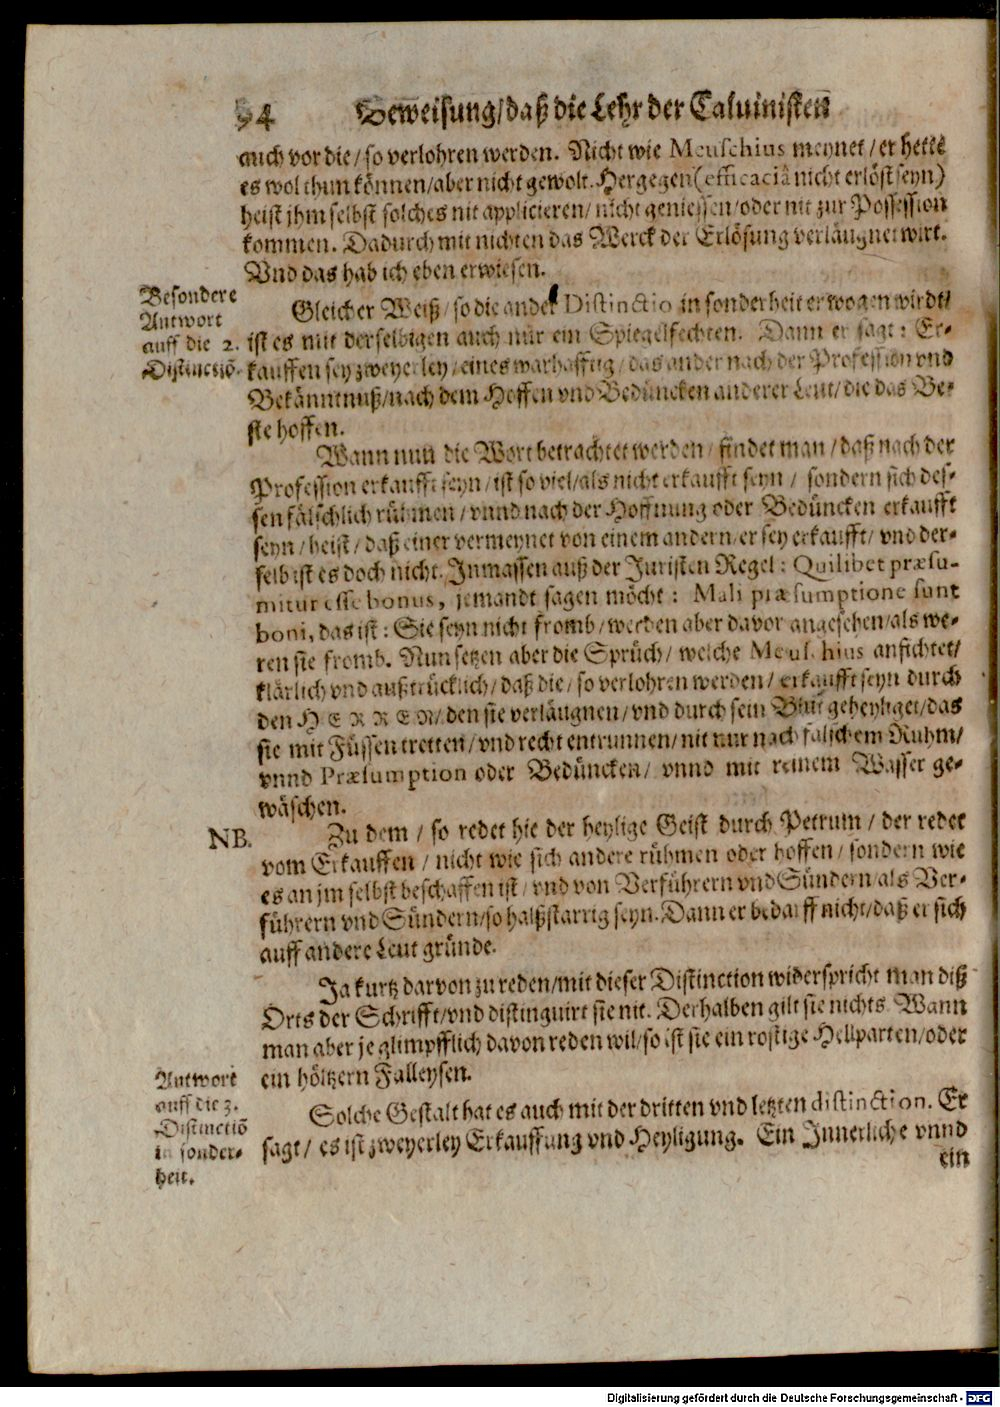 94 Beweisung/daß die Lehr der Caluinisten
auch vor die/so verlohren werden. Nicht wie Meuschius meynet/er hette
es wol thun können/aber nicht gewolt. Hergegen (efficaciâ nicht erlöst seyn)
heist jhm selbst solches nit applicieren/nicht geniessen/oder nit zur Possession
kommen. Dadurch mit nichten das Werck der Erlösung verläugnet wirt.
Vnd das hab ich eben erwiesen.
Besondere
Antwort
auff die 2.
Distinctiõ.
Gleicher Weiß/so die ander Distinctio in sonderheit erwogen wirdt/
ist es mit derselbigen auch nur ein Spiegelfechten. Dann er sagt: Er-
kauffen sey zweyerley/eines warhafftig/das ander nach der Profession vnd
Bekänntnuß/nach dem Hoffen vnd Bedüncken anderer Leut/die das Be-
ste hoffen.
Wann nun die Wort betrachtet werden/findet man/daß nach der
Profession erkaufft seyn/ist so viel/als nicht erkaufft seyn/sondern sich des-
sen fälschlich rühmen/vnnd nach der Hoffnung oder Bedüncken erkaufft
seyn/heist/daß einer vermeynet von einem andern/er sey erkaufft/vnd der-
selb ist es doch nicht. Inmassen auß der Juristen Regel: Quilibet præsu-
mitur esse bonus, jemandt sagen möcht: Mali præsumptione sunt
boni, das ist: Sie seyn nicht fromb/werden aber davor angesehen/als we-
ren sie fromb. Nun setzen aber die Sprüch/welche Meuschius anfichtet/
klärlich vnd außtrücklich/daß die/so verlohren werden/erkaufft seyn durch
den HERREN/den sie verläugnen/vnd durch sein Blut geheyliget/das
sie mit Füssen tretten/vnd recht entrunnen/nit nur nach falschem Ruhm/
vnnd Præsumption oder Bedüncken/vnnd mit reinem Wasser ge-
wäschen.
NB.
Zu dem/so redet hie der heylige Geist durch Petrum/der redet
vom Erkauffen/nicht wie sich andere rühmen oder hoffen/sondern wie
es an jm selbst beschaffen ist/vnd von Verführern vnd Sündern/als Ver-
führern vnd Sündern/so halßstarrig seyn. Dann er bedarff nicht/daß er sich
auff andere Leut gründe.
Ja kurtz darvon zu reden/mit dieser Distinction widerspricht man diß
Orts der Schrifft/vnd distinguirt sie nit. Derhalben gilt sie nichts. Wann
man aber je glimpfflich davon reden wil/so ist sie ein rostige Hellparten/oder
ein höltzern Falleysen.
Antwort
auff die 3.
Distinctiõ
in sonder-
heit.
Solche Gestalt hat es auch mit der dritten vnd letzten distinction. Er
sagt/es ist zweyerley Erkauffung vnd Heyligung. Ein Innerliche vnnd
ein
Digitalisierung gefördert durch die Deutsche Forschungsgemeinschaft - DFG